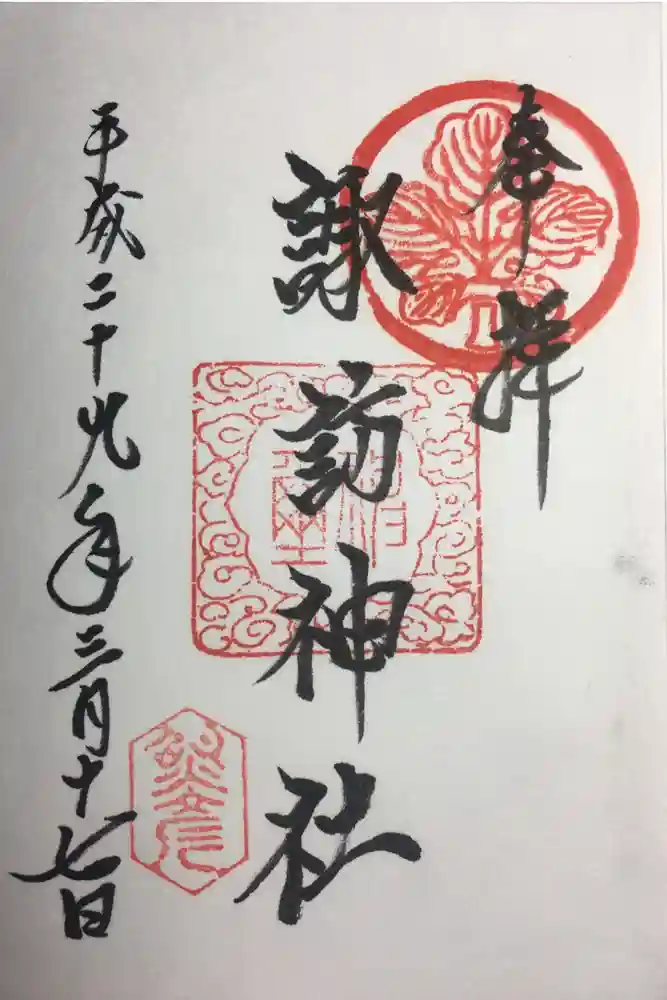 奉拝
諏訪神社
平成二十九年三月十七日